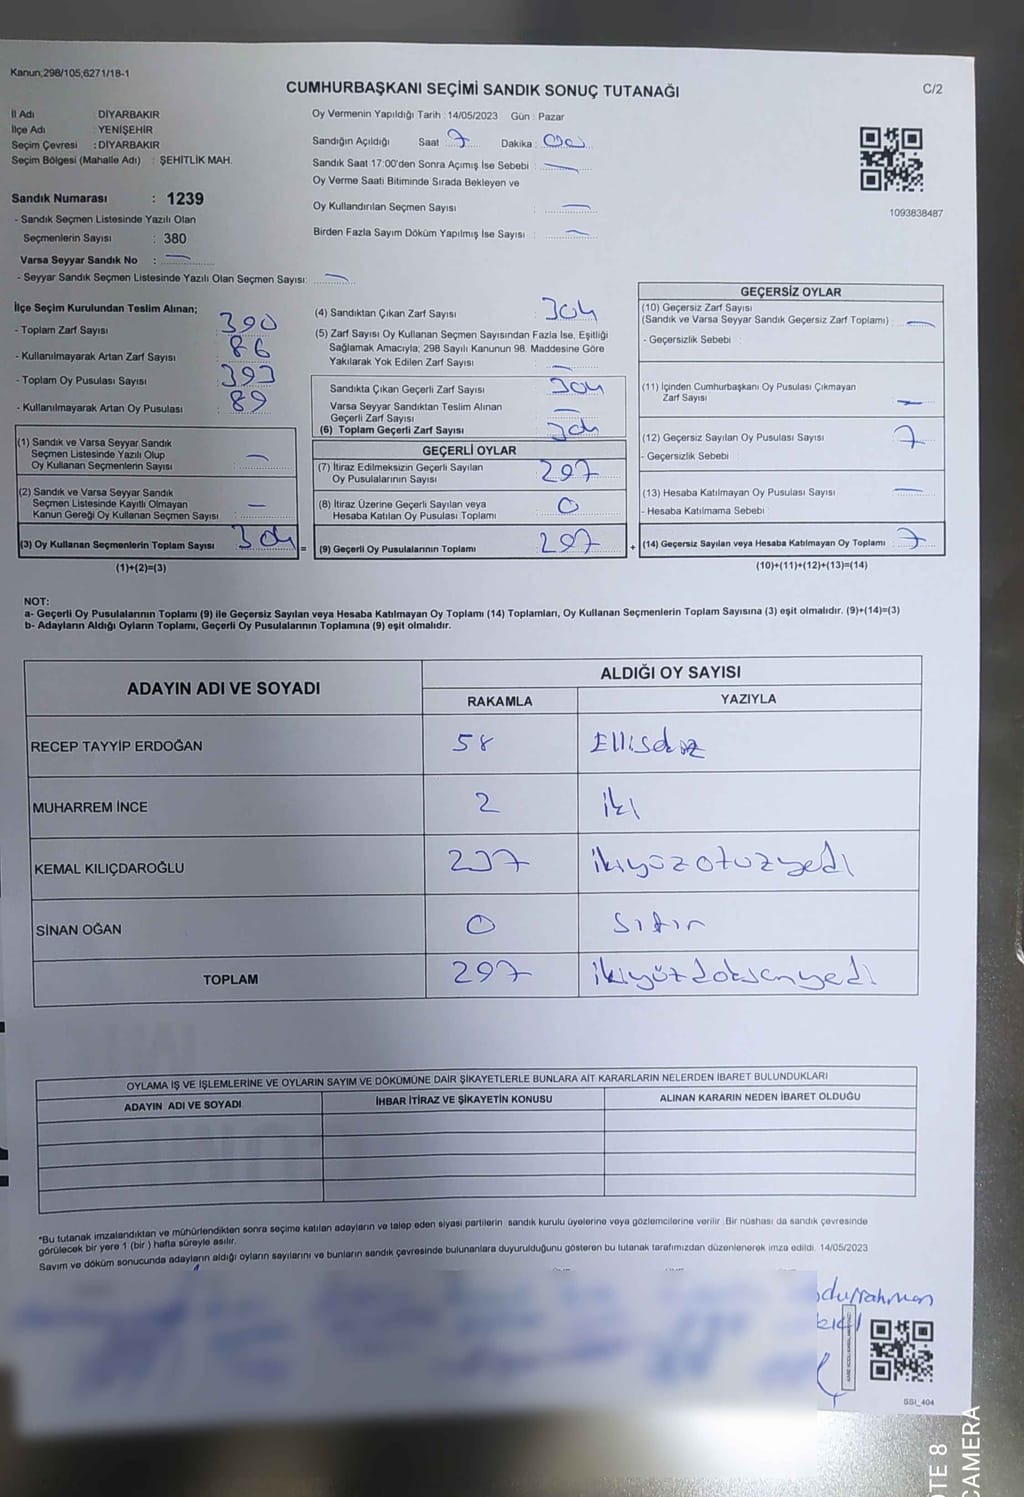 Kanun;298/105;6271/18-1
CUMHURBAŞKANI SEÇİMİ SANDIK SONUÇ TUTANAĞI
C/2
İl Adı DİYARBAKIR
İlçe Adı : YENİŞEHİR
Seçim Çevresi : DİYARBAKIR
Seçim Bölgesi (Mahalle Adı) : ŞEHİTLİK MAH.
Sandık Numarası : 1239
- Sandık Seçmen Listesinde Yazılı Olan
Seçmenlerin Sayısı : 380
Varsa Seyyar Sandık No : —
- Seyyar Sandık Seçmen Listesinde Yazılı Olan Seçmen Sayısı: —
Oy Vermenin Yapıldığı Tarih : 14/05/2023 Gün : Pazar
Sandığın Açıldığı Saat 7 Dakika : 00
Sandık Saat 17:00'den Sonra Açımış İse Sebebi : —
Oy Verme Saati Bitiminde Sırada Bekleyen ve
Oy Kullandırılan Seçmen Sayısı : —
Birden Fazla Sayım Döküm Yapılmış İse Sayısı : —
1093838487
İlçe Seçim Kurulundan Teslim Alınan;
- Toplam Zarf Sayısı : 390
- Kullanılmayarak Artan Zarf Sayısı : 86
- Toplam Oy Pusulası Sayısı : 393
- Kullanılmayarak Artan Oy Pusulası : 89
(1) Sandık ve Varsa Seyyar Sandık
Seçmen Listesinde Yazılı Olup
Oy Kullanan Seçmenlerin Sayısı : —
(2) Sandık ve Varsa Seyyar Sandık
Seçmen Listesinde Kayıtlı Olmayan
Kanun Gereği Oy Kullanan Seçmen Sayısı : —
(3) Oy Kullanan Seçmenlerin Toplam Sayısı : 304 =
(1)+(2)=(3)
(4) Sandıktan Çıkan Zarf Sayısı : 304
(5) Zarf Sayısı Oy Kullanan Seçmen Sayısından Fazla İse, Eşitliği
Sağlamak Amacıyla; 298 Sayılı Kanunun 98. Maddesine Göre
Yakılarak Yok Edilen Zarf Sayısı : —
Sandıkta Çıkan Geçerli Zarf Sayısı : 304
Varsa Seyyar Sandıktan Teslim Alınan
Geçerli Zarf Sayısı : —
(6) Toplam Geçerli Zarf Sayısı : 304
GEÇERLİ OYLAR
(7) İtiraz Edilmeksizin Geçerli Sayılan
Oy Pusulalarının Sayısı : 297
(8) İtiraz Üzerine Geçerli Sayılan veya
Hesaba Katılan Oy Pusulası Toplamı : 0
(9) Geçerli Oy Pusulalarının Toplamı : 297 +
GEÇERSİZ OYLAR
(10) Geçersiz Zarf Sayısı
(Sandık ve Varsa Seyyar Sandık Geçersiz Zarf Toplamı) : —
- Geçersizlik Sebebi :
(11) İçinden Cumhurbaşkanı Oy Pusulası Çıkmayan
Zarf Sayısı : —
(12) Geçersiz Sayılan Oy Pusulası Sayısı : 7
- Geçersizlik Sebebi :
(13) Hesaba Katılmayan Oy Pusulası Sayısı : —
- Hesaba Katılmama Sebebi :
(14) Geçersiz Sayılan veya Hesaba Katılmayan Oy Toplamı : 7
(10)+(11)+(12)+(13)=(14)
NOT:
a- Geçerli Oy Pusulalarının Toplamı (9) ile Geçersiz Sayılan veya Hesaba Katılmayan Oy Toplamı (14) Toplamları, Oy Kullanan Seçmenlerin Toplam Sayısına (3) eşit olmalıdır. (9)+(14)=(3)
b- Adayların Aldığı Oyların Toplamı, Geçerli Oy Pusulalarının Toplamına (9) eşit olmalıdır.
ADAYIN ADI VE SOYADI ALDIĞI OY SAYISI
RAKAMLA YAZIYLA
RECEP TAYYİP ERDOĞAN 58 Ellisekiz
MUHARREM İNCE 2 iki
KEMAL KILIÇDAROĞLU 237 ikiyüzotuzyedi
SİNAN OĞAN 0 Sıfır
TOPLAM 297 ikiyüzdoksanyedi
OYLAMA İŞ VE İŞLEMLERİNE VE OYLARIN SAYIM VE DÖKÜMÜNE DAİR ŞİKAYETLERLE BUNLARA AİT KARARLARIN NELERDEN İBARET BULUNDUKLARI
ADAYIN ADI VE SOYADI İHBAR İTİRAZ VE ŞİKAYETİN KONUSU ALINAN KARARIN NEDEN İBARET OLDUĞU
*Bu tutanak imzalandıktan ve mühürlendikten sonra seçime katılan adayların ve talep eden siyasi partilerin sandık kurulu üyelerine veya gözlemcilerine verilir. Bir nüshası da sandık çevresinde
görülecek bir yere 1 (bir) hafta süreyle asılır.
Sayım ve döküm sonucunda adayların aldığı oyların sayılarını ve bunların sandık çevresinde bulunanlara duyurulduğunu gösteren bu tutanak tarafımızdan düzenlenerek imza edildi. 14/05/2023
SSI_404
OTE 8
CAMERA